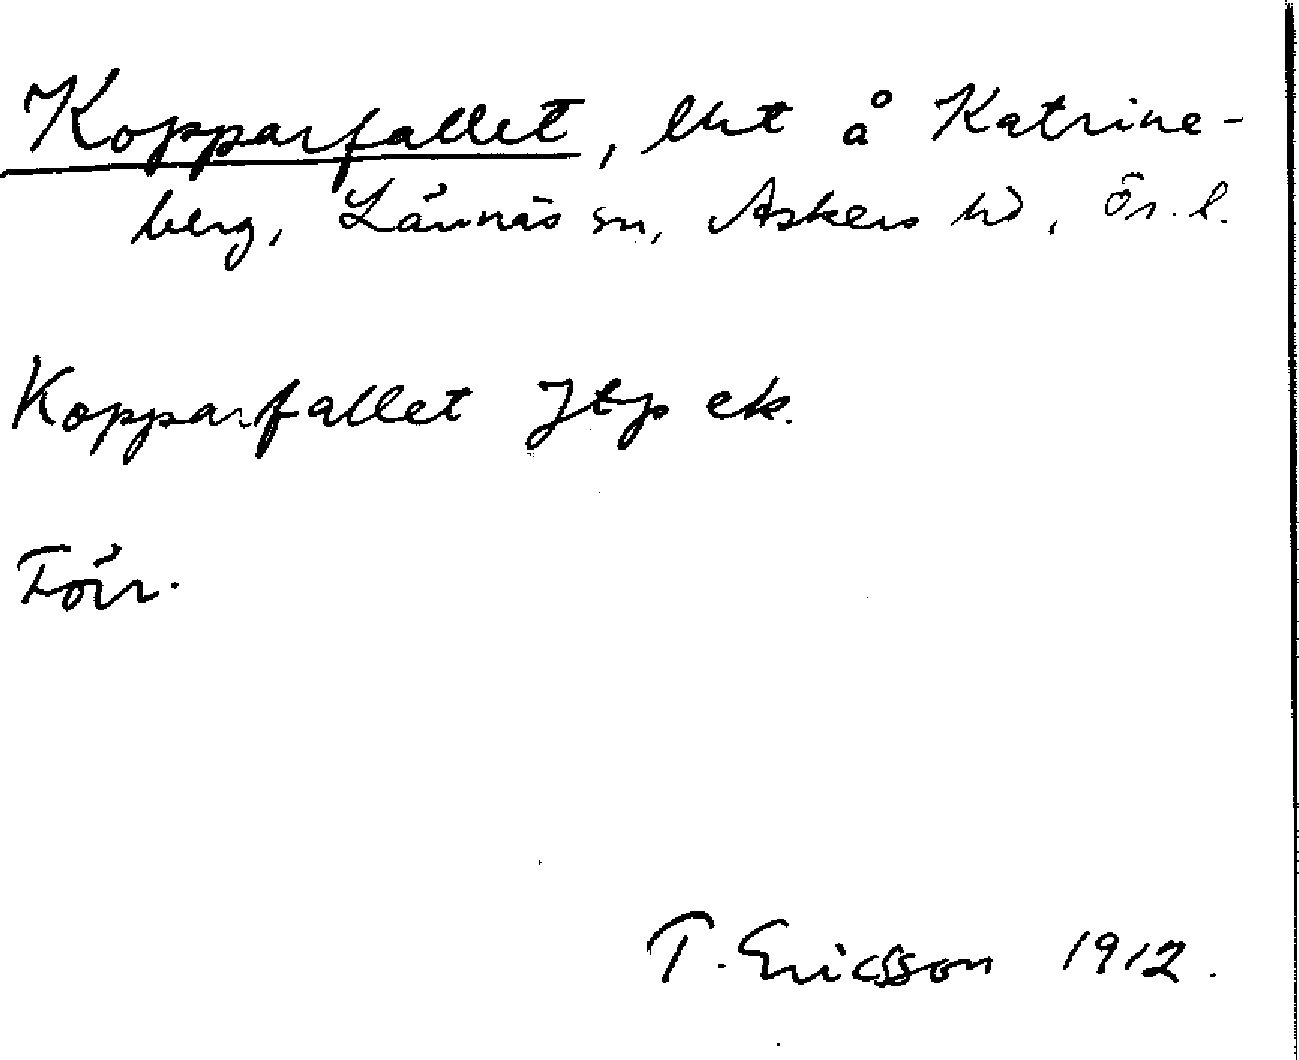 Kopparfallet, lht å Katrine-
berg, Lännäs sn, Askers hd, Ör. l.
Kopparfallet Jtp ek.
Förr.
T. Ericsson 1912.